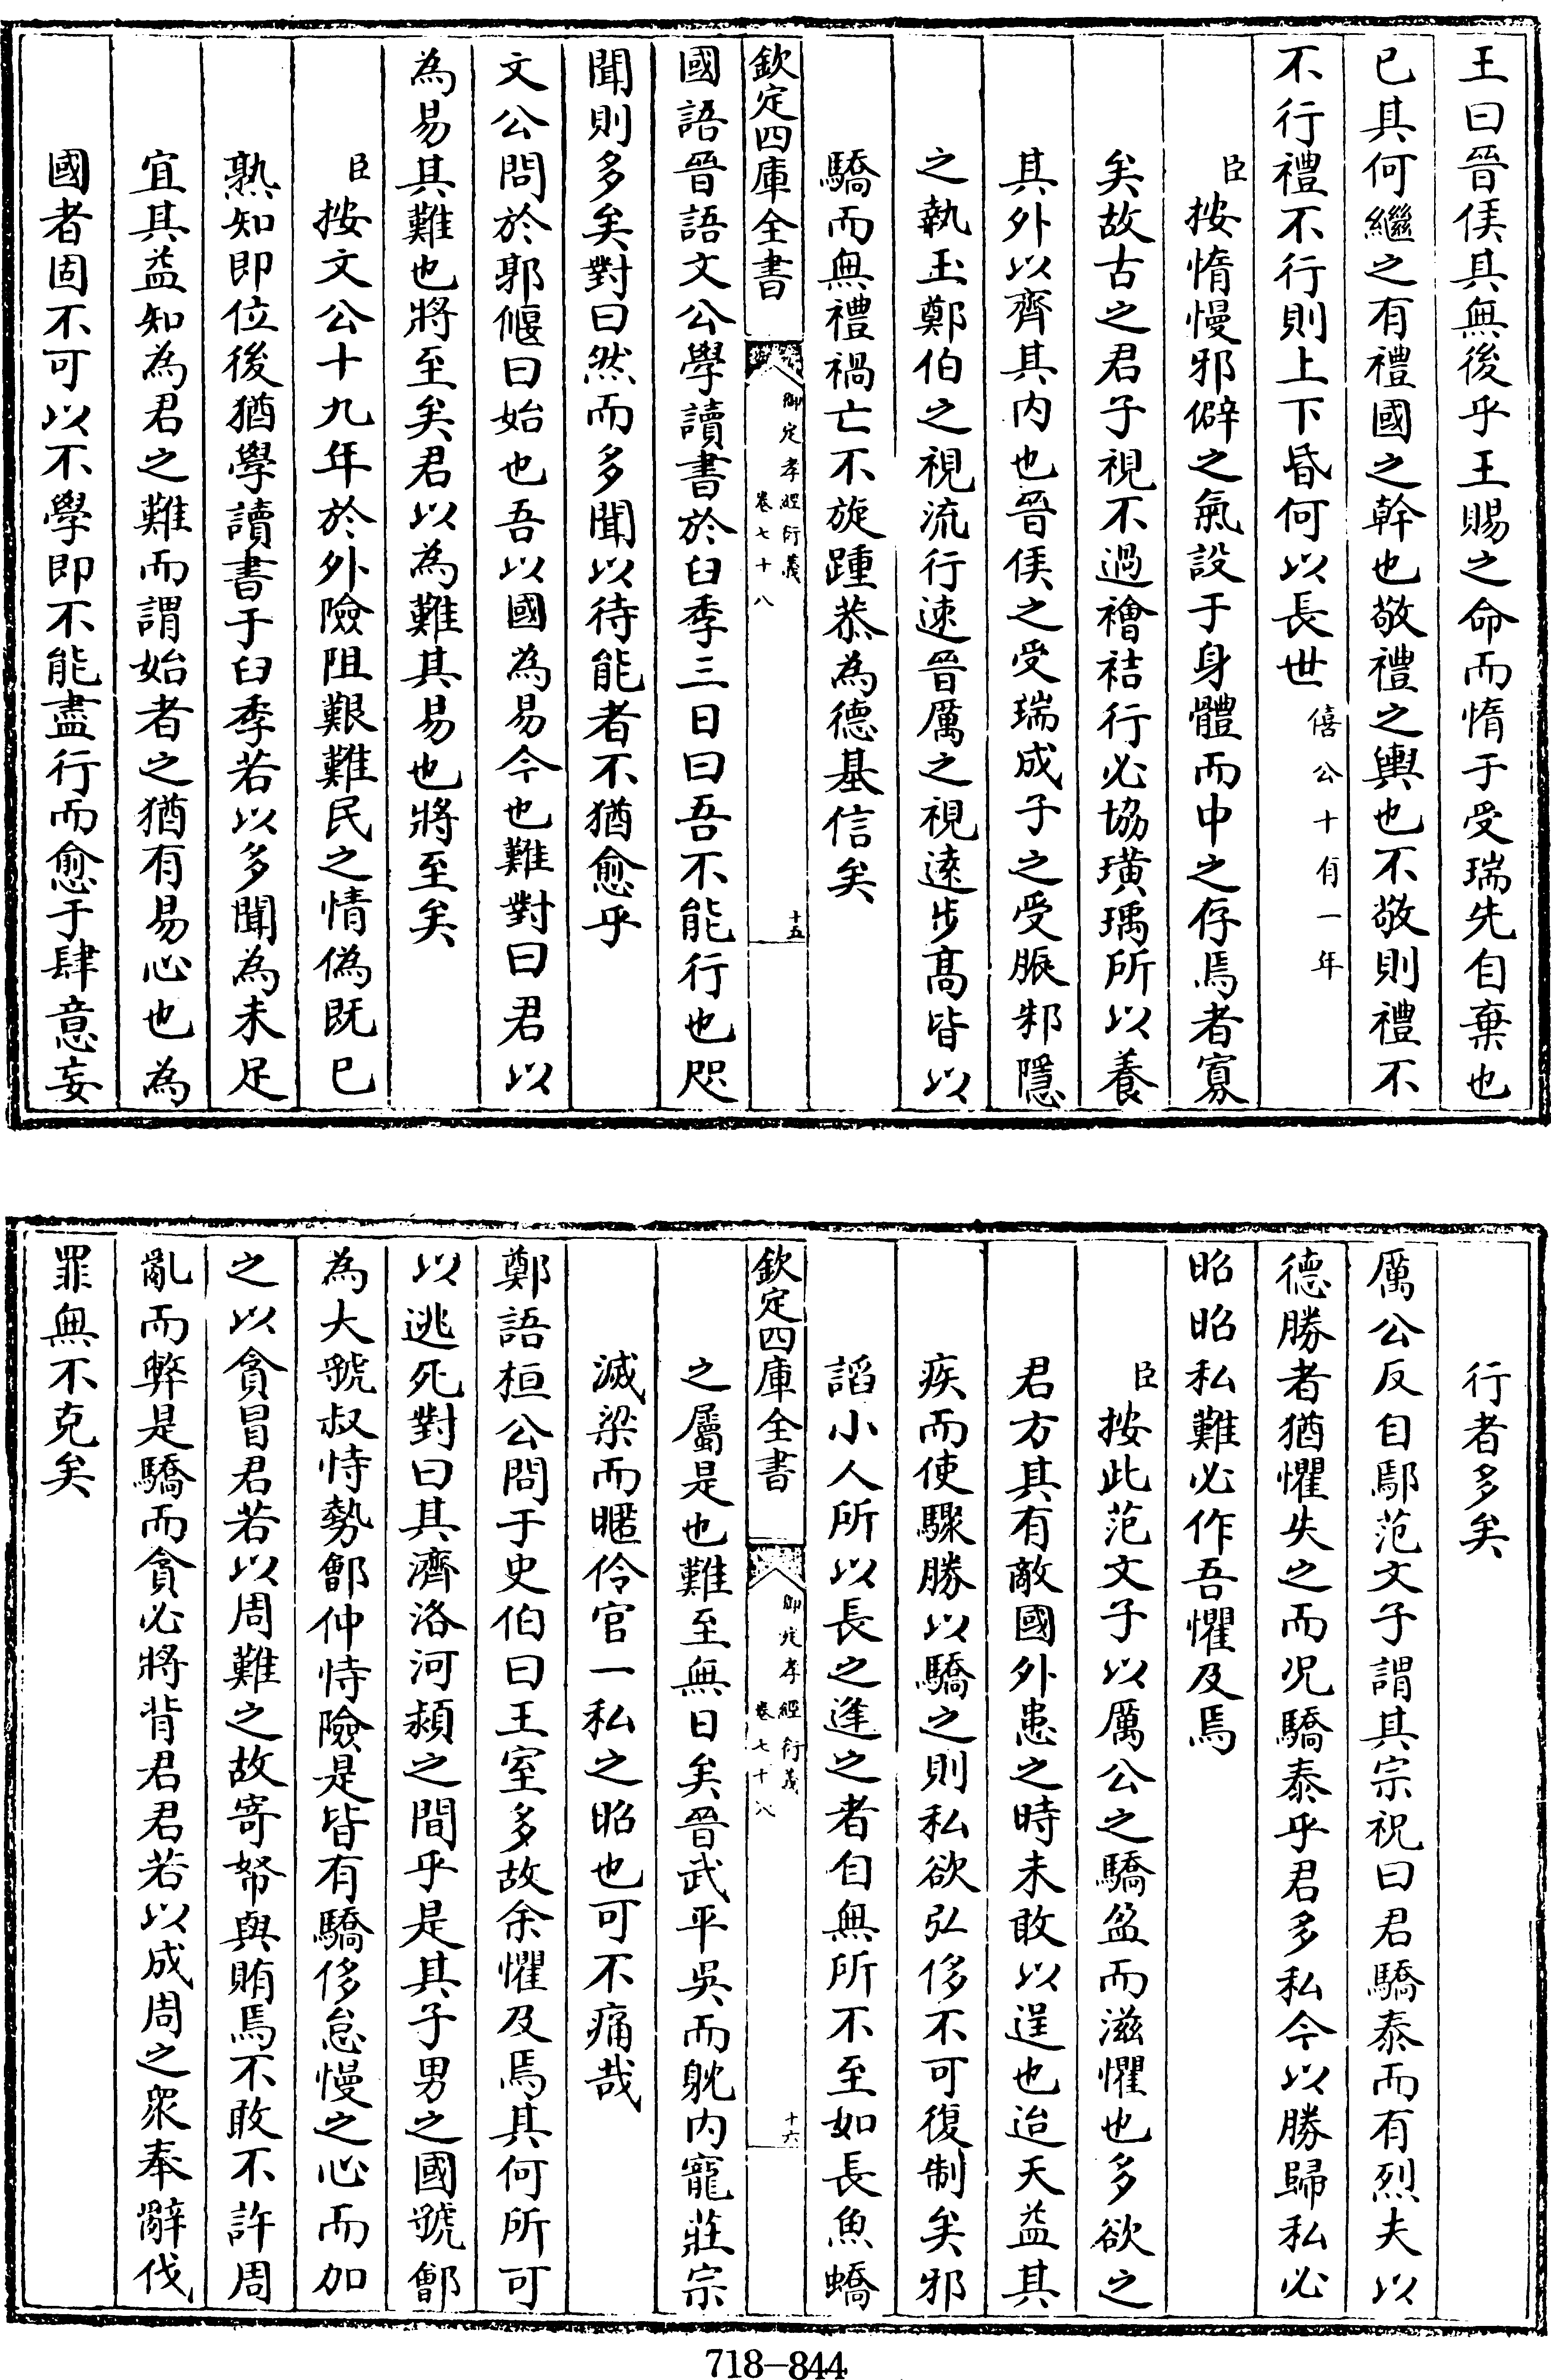 王曰晉侯其無後乎王賜之命而惰于受瑞先自棄也
已其何繼之有禮國之幹也敬禮之輿也不敬則禮不
不行禮不行則上下昏何以長世僖公十有一年
臣按惰慢邪僻之氣設于身體而中之存焉者寡
矣故古之君子視不過襘袺行必協璜瑀所以養
其外以齊其内也晉侯之受瑞成子之受脤邾隱
之執玉鄭伯之視流行速晉厲之視逺步髙皆以
驕而無禮禍亡不旋踵恭為德基信矣
欽定四庫全書
御定孝經衍義
卷七十八
十五
國語晉語文公學讀書於臼季三日曰吾不能行也咫
聞則多矣對曰然而多聞以待能者不猶愈乎
文公問於郭偃曰始也吾以國為易今也難對曰君以
為易其難也將至矣君以為難其易也將至矣
臣按文公十九年於外險阻艱難民之情偽既已
熟知即位後猶學讀書于臼季若以多聞為未足
宜其益知為君之難而謂始者之猶有易心也為
國者固不可以不學即不能盡行而愈于肆意妄
行者多矣
厲公反自鄢范文子謂其宗祝曰君驕泰而有烈夫以
德勝者猶懼失之而况驕泰乎君多私今以勝歸私必
昭昭私難必作吾懼及焉
臣按此范文子以厲公之驕盈而滋懼也多欲之
君方其有敵國外患之時未敢以逞也迨天益其
疾而使驟勝以驕之則私欲弘侈不可復制矣邪
謟小人所以長之逢之者自無所不至如長魚蟜
欽定四庫全書
御定孝經衍義
卷七十八
十六
之屬是也難至無日矣晉武平吳而躭内寵莊宗
滅梁而暱伶官一私之昭也可不痛哉
鄭語桓公問于史伯曰王室多故余懼及焉其何所可
以逃死對曰其濟洛河潁之間乎是其子男之國虢鄶
為大虢叔恃勢鄶仲恃險是皆有驕侈怠慢之心而加
之以貪冒君若以周難之故寄帑與賄焉不敢不許周
亂而弊是驕而貪必將背君君若以成周之衆奉辭伐
罪無不克矣
718–844